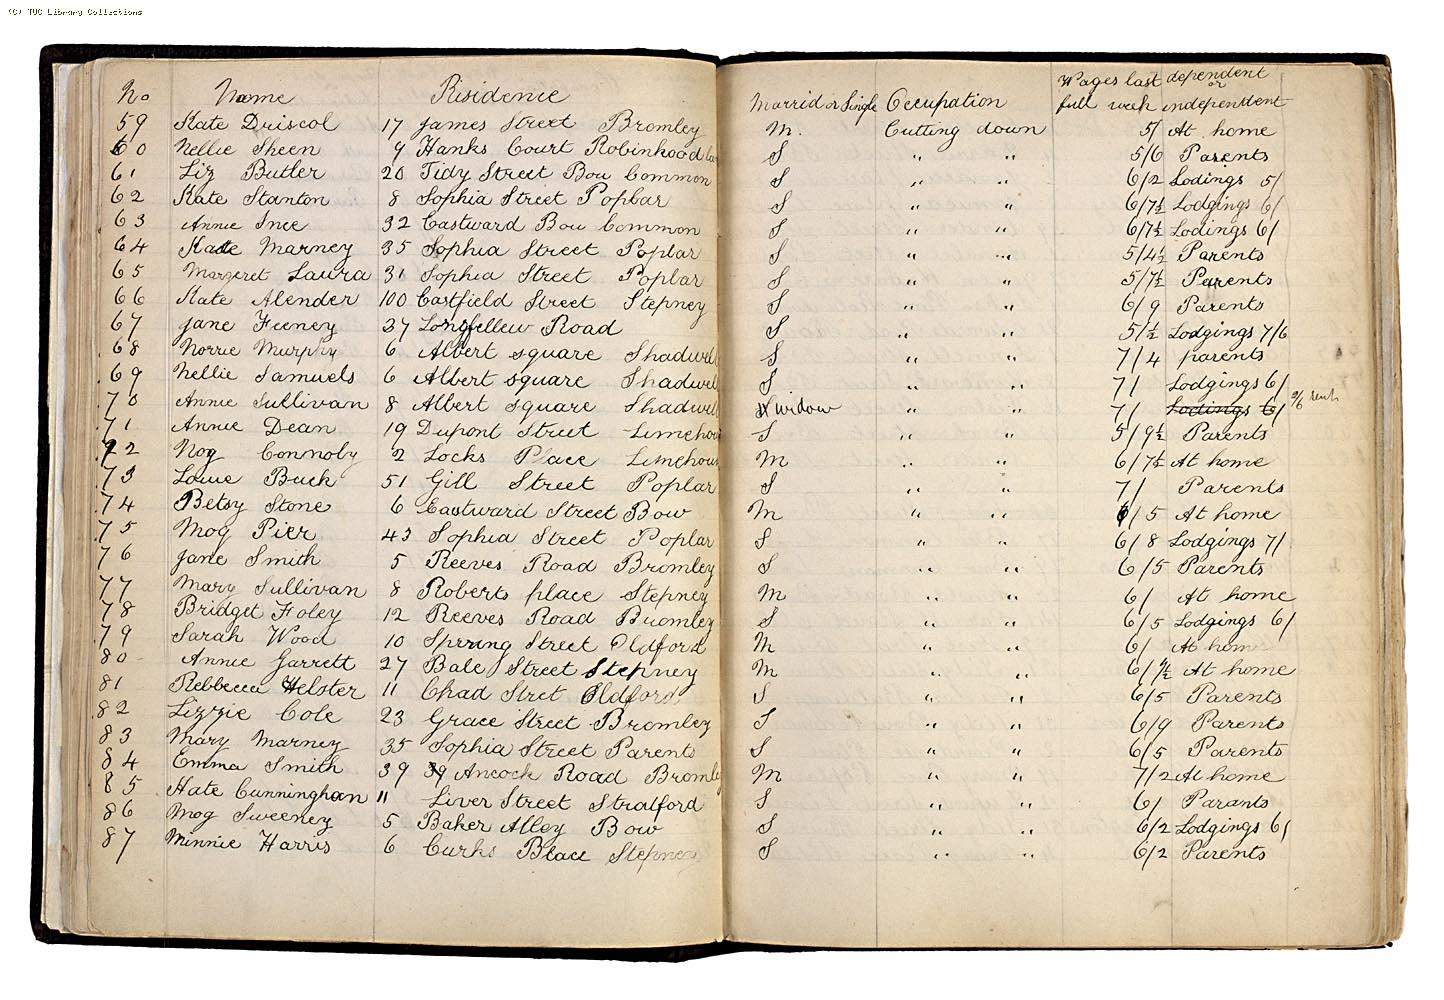 (C) TUC Library Collections
No Name Residence Marrid or Single Occupation Wages last full week dependent or independent
59 Kate Driscol 17 James Street Bromley M. Cutting down 5/ At home
60 Nellie Sheen 9 Hanks Court Robinhood S " " 5/6 Parents
61 Liz Butler 20 Tidy Street Bow Common S " " 6/2 Lodings 5/
62 Kate Stanton 8 Sophia Street Poplar S " " 6/7½ Lodgings 6/
63 Annie Ince 32 Eastward Bow Common S " " 6/7½ Lodings 6/
64 Kate Marney 35 Sophia Street Poplar S " " 5/4½ Parents
65 Margret Laura 31 Sophia Street Poplar S " " 5/7½ Parents
66 Kate Alender 100 Eastfield Street Stepney S " " 6/9 Parents
67 Jane Feeney 37 Longfellew Road S " " 5/½ Lodgings 7/6
68 Norrie Murphy 6 Albert square Shadwell S " " 7/4 parents
69 Nellie Samuels 6 Albert square Shadwell S " " 7/ Lodgings 6/
70 Annie Sullivan 8 Albert Square Shadwell widow " " 7/ Lodings 6/ 2/6
71 Annie Dean 19 Dupont Street Limehou S " " 5/9½ Parents
72 Nog Connoby 2 Locks Place Limehous M " " 6/7½ At home
73 Louie Buck 51 Gill Street Poplar S " " 7/ Parents
74 Betsy Stone 6 Eastward Street Bow M " " 6/5 At home
75 Mog Pier 43 Sophia Street Poplar S " " 6/8 Lodgings 7/
76 Jane Smith 5 Reeves Road Bromley S " " 6/5 Parents
77 Mary Sullivan 8 Roberts place Stepney M " " 6/ At home
78 Bridget Foley 12 Reeves Road Bromley S " " 6/5 Lodgings 6/
79 Sarah Wood 10 Spring Street Oldford M " " 6/ At home
80 Annie Garrett 27 Bale Street Stepney M " " 6/9½ At home
81 Rebbecca Helster 11 Chad Stret Oldford S " " 6/5 Parents
82 Lizzie Cole 23 Grace Street Bromley S " " 6/9 Parents
83 Mary Marney 35 Sophia Street Parents S " " 6/5 Parents
84 Emma Smith 39 39 Ancock Road Bromley M " " 7/2 At home
85 Kate Cunningham 11 Liver Street Stratford S " " 6/ Parants
86 Mog Sweeney 5 Baker Alley Bow S " " 6/2 Lodgings 6/
87 Minnie Harris 6 Curks Place Stepney S " " 6/2 Parents